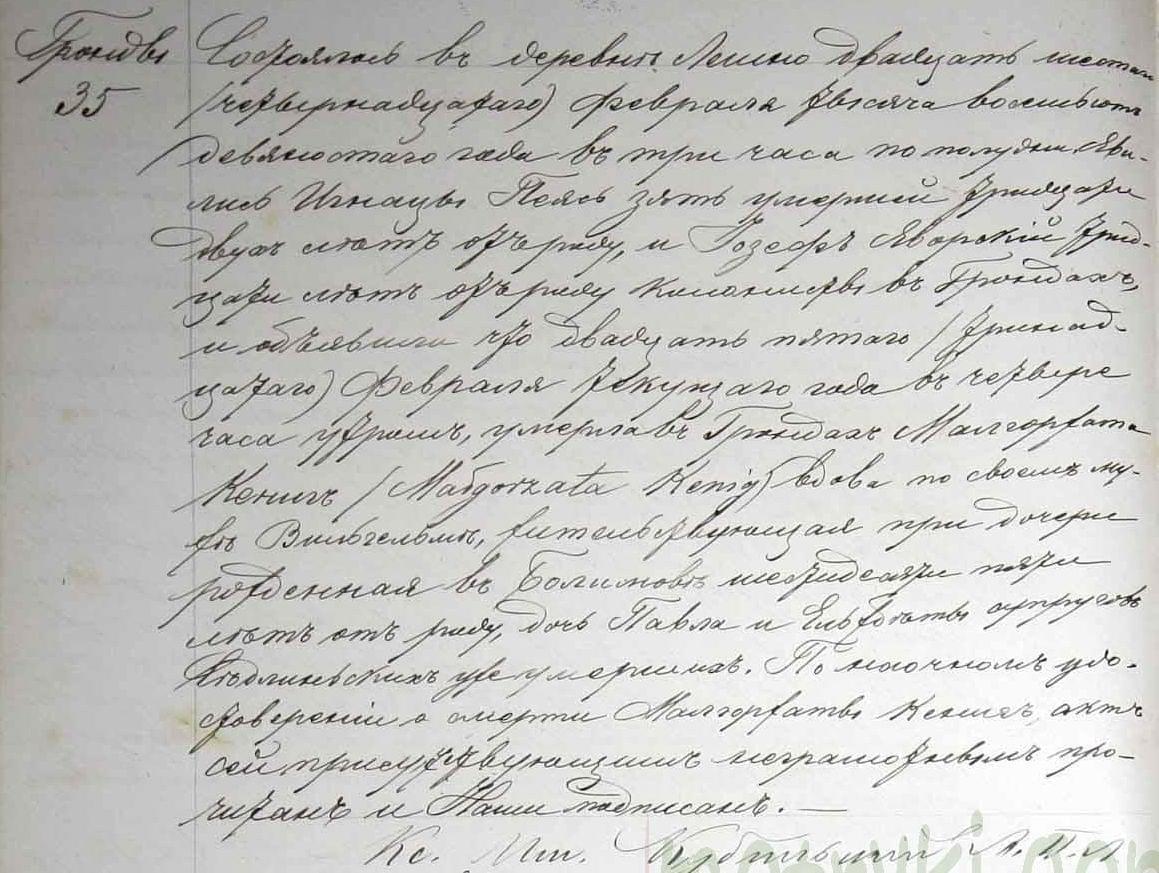 Гронды Состоялось въ деревнѣ Лешно двадцать шестаго
35 /четырнадцатаго) Февраля тысяча восемьсотъ
девяностаго года въ три часа по полудни. Яви-
лись Игнацы Поясъ зять умершей тридцати
двухъ лѣтъ отъ роду, и Іозефъ Яворскій трид-
цати лѣтъ отъ роду колонисты въ Грондахъ,
и объявили что двадцать пятаго /тринад-
цатаго) Февраля текущаго года въ четыре
часа утромъ, умерла въ Грондахъ Малгоржата
Кенигъ /Małgorzata Kenig) вдова по своемъ му-
жѣ Вильгельмѣ, жительствующая при дочери
рожденная въ Болимовѣ шестидесяти пяти
лѣтъ отъ роду, дочь Павла и Ельжбѣты супруговъ
уже умершихъ. По наочномъ удо-
стовереніи о смерти Малгоржаты Кенигъ, актъ
сей присутствующимъ неграмотнымъ про-
читанъ и Нами подписанъ. —
Кс.